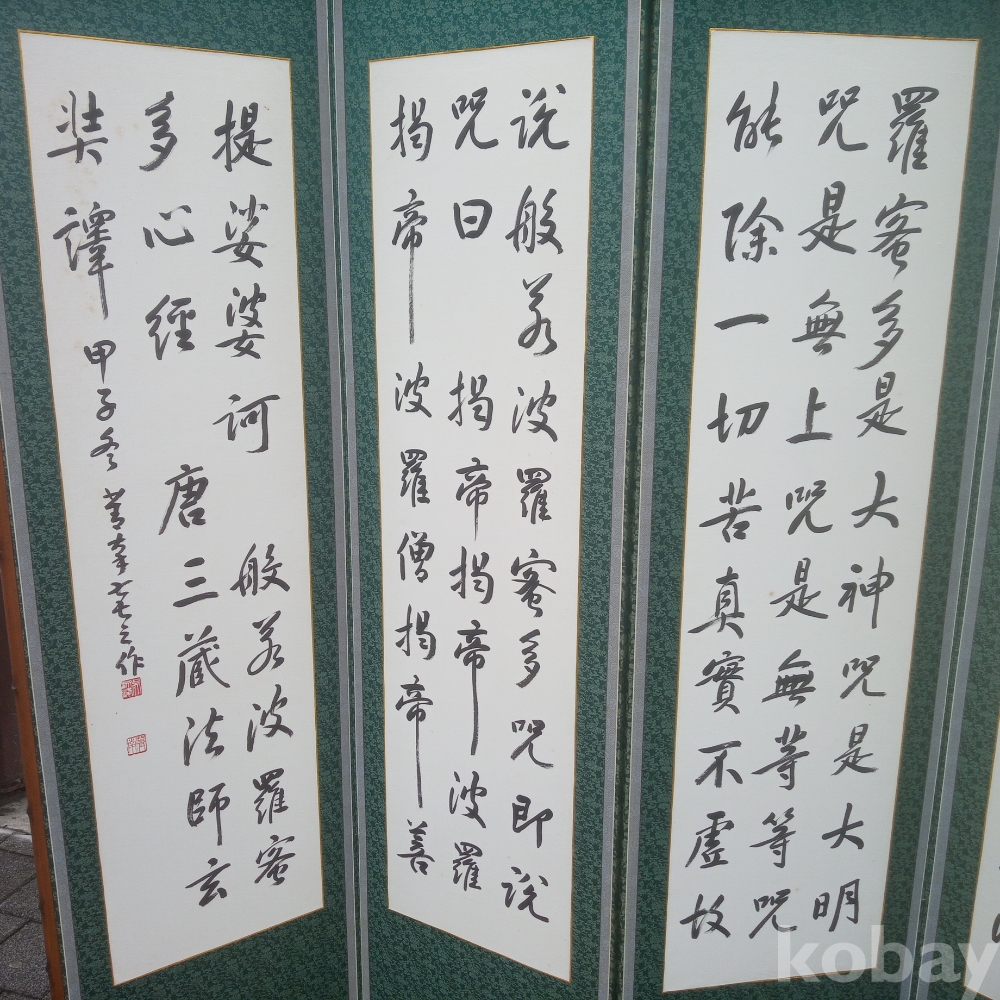 羅蜜多是大神呪是大明
呪是無上呪是無等等呪
能除一切苦真實不虛故
說般若波羅蜜多呪即說
呪曰 揭帝揭帝 波羅
揭帝 波羅僧揭帝 菩
提娑婆訶 般若波羅蜜
多心經 唐三藏法師玄
奘譯 甲子冬 七七之作
kobay